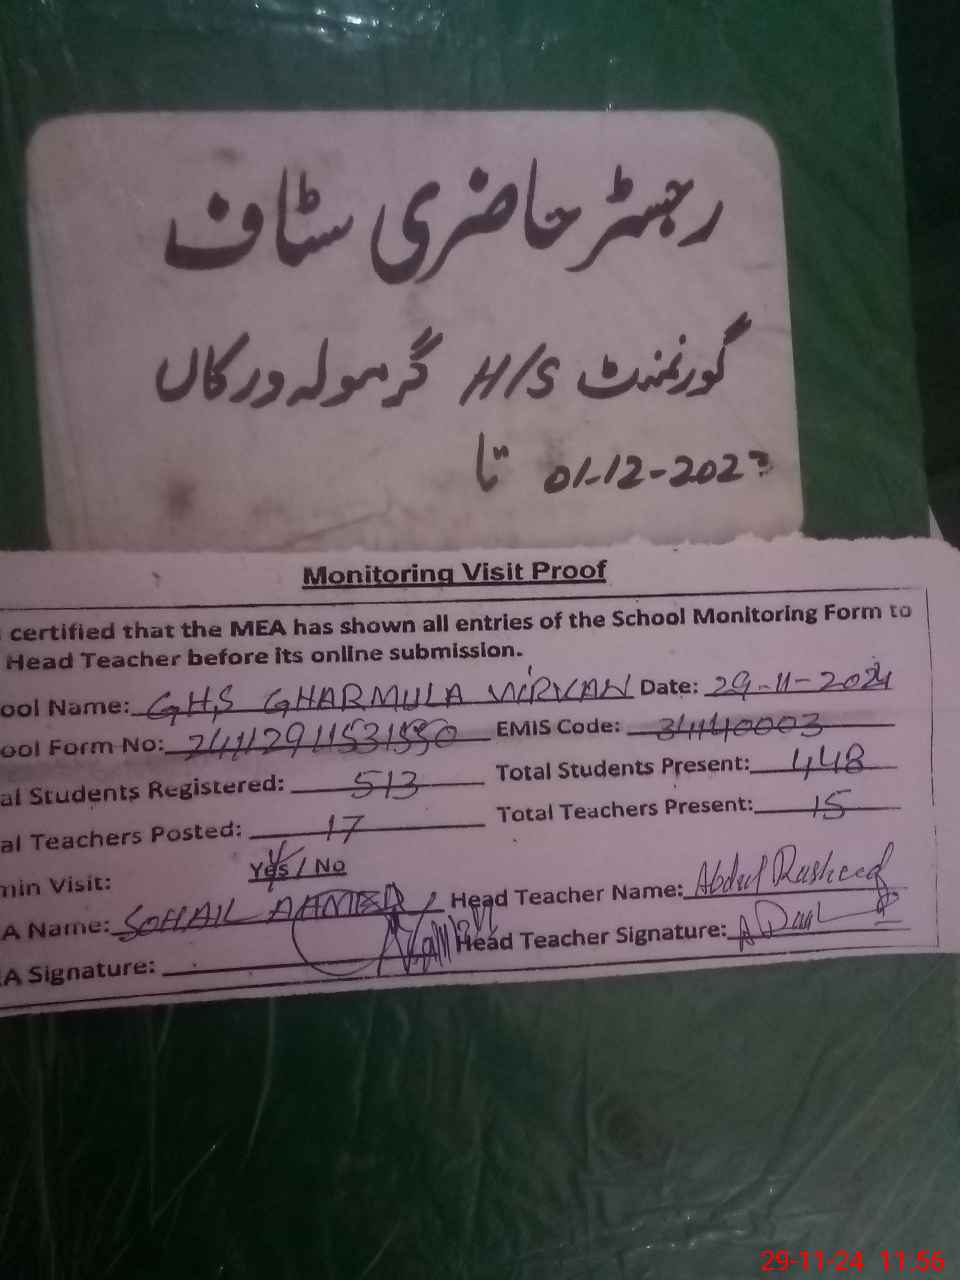 رجسٹر حاضری سٹاف
گورنمنٹ H/S گرمولہ ورکاں
01-12-2023 تا
Monitoring Visit Proof
certified that the MEA has shown all entries of the School Monitoring Form to
Head Teacher before its online submission.
ool Name: GHS GHARMULA VIRKAN Date: 29-11-2024
ool Form No: EMIS Code: 34140003
al Students Registered: 513 Total Students Present: 448
al Teachers Posted: 17 Total Teachers Present: 15
min Visit: Yes / No
A Name: SOHAIL AHMED Head Teacher Name: Abdul Rasheed
A Signature: Head Teacher Signature:
29-11-24 11:56